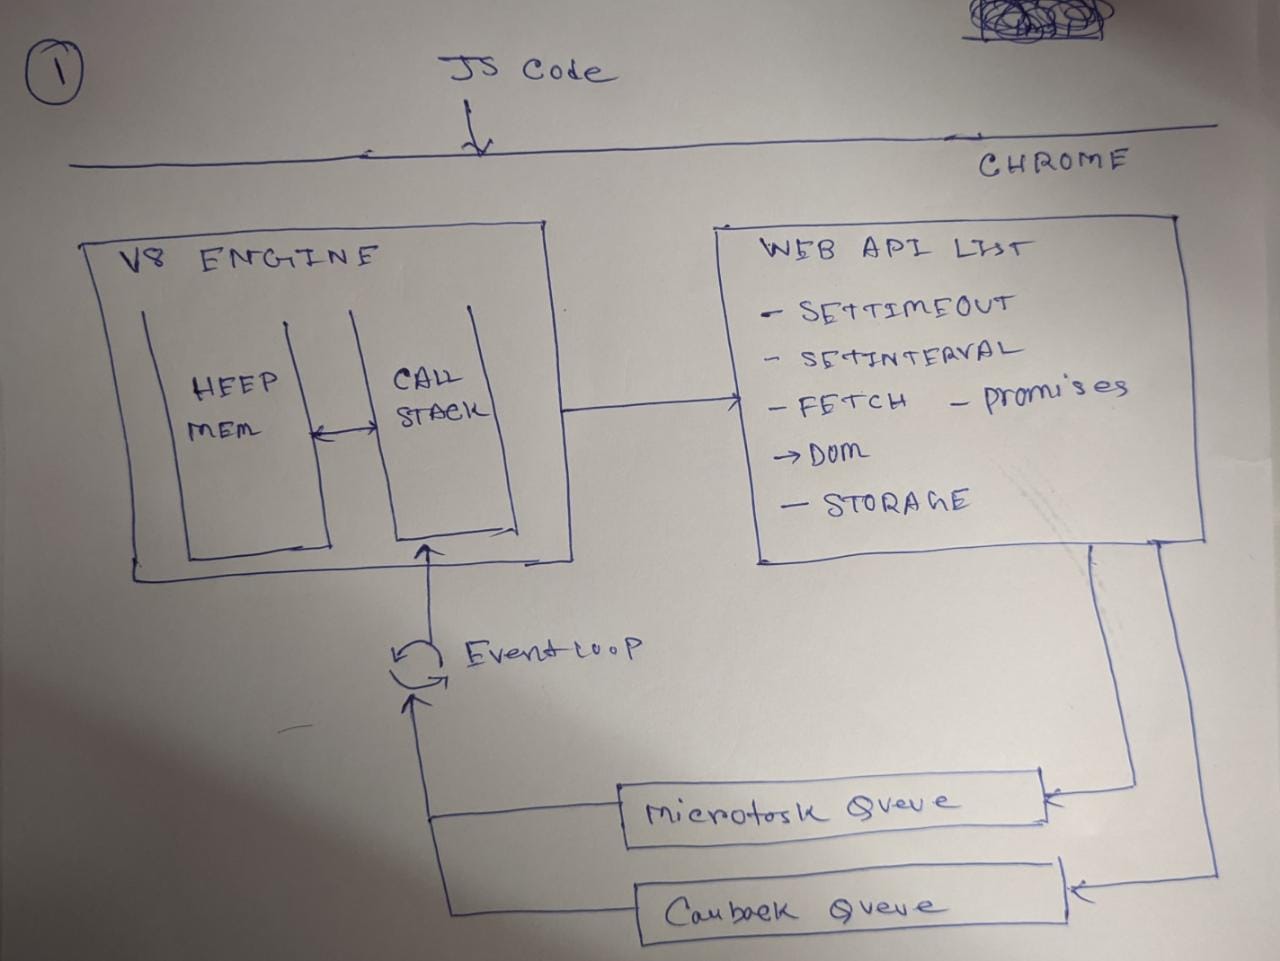 1
JS Code
CHROME
V8 ENGINE
HEEP
MEM
CALL
STACK
WEB API LIST
- SETTIMEOUT
- SETINTERVAL
- FETCH - promises
→ DOM
- STORAGE
Event Loop
Microtask Queue
Callback Queue